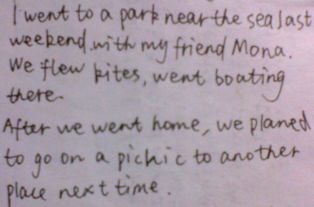 I went to a park near the sea last
weekend. with my friend Mona.
We flew kites, went boating
there.
After we went home, we planed
to go on a pichic to another
place next time.